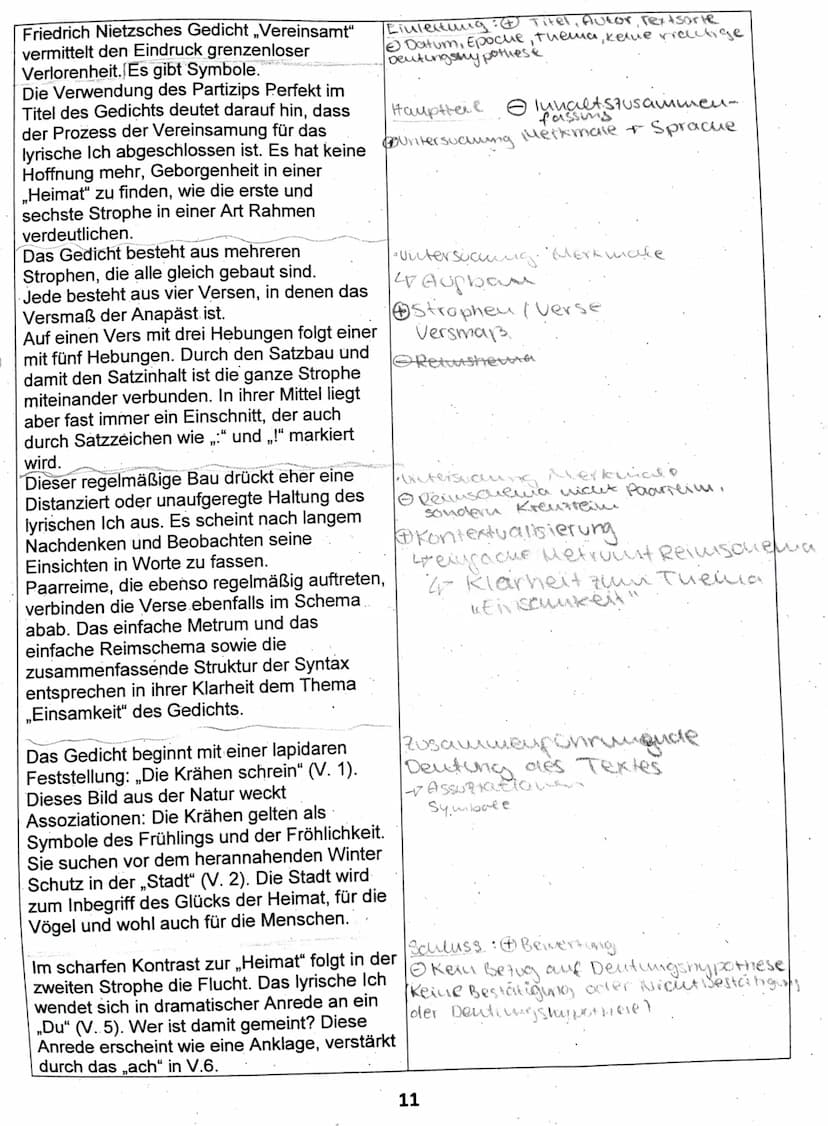 Friedrich Nietzsches Gedicht „Vereinsamt“
vermittelt den Eindruck grenzenloser
Verlorenheit. Es gibt Symbole.
Die Verwendung des Partizips Perfekt im
Titel des Gedichts deutet darauf hin, dass
der Prozess der Vereinsamung für das
lyrische Ich abgeschlossen ist. Es hat keine
Hoffnung mehr, Geborgenheit in einer
„Heimat“ zu finden, wie die erste und
sechste Strophe in einer Art Rahmen
verdeutlichen.
Einleitung: ⊕ Titel, Autor, Textsorte
⊖ Datum, Epoche, Thema, keine richtige
Deutungshypothese
Hauptteil ⊖ Inhaltszusammen-
fassung
⊕ Untersuchung Merkmale + Sprache
Das Gedicht besteht aus mehreren
Strophen, die alle gleich gebaut sind.
Jede besteht aus vier Versen, in denen das
Versmaß der Anapäst ist.
Auf einen Vers mit drei Hebungen folgt einer
mit fünf Hebungen. Durch den Satzbau und
damit den Satzinhalt ist die ganze Strophe
miteinander verbunden. In ihrer Mittel liegt
aber fast immer ein Einschnitt, der auch
durch Satzzeichen wie „:“ und „!“ markiert
wird.
Untersuchung Merkmale
↳ Aufbau
⊕ Strophen / Verse
Versmaß
Dieser regelmäßige Bau drückt eher eine
Distanziert oder unaufgeregte Haltung des
lyrischen Ich aus. Es scheint nach langem
Nachdenken und Beobachten seine
Einsichten in Worte zu fassen.
Paarreime, die ebenso regelmäßig auftreten,
verbinden die Verse ebenfalls im Schema
abab. Das einfache Metrum und das
einfache Reimschema sowie die
zusammenfassende Struktur der Syntax
entsprechen in ihrer Klarheit dem Thema
„Einsamkeit“ des Gedichts.
Untersuchung Merkmale
⊖ Reimschema nicht Paarreim,
sondern Kreuzreim
⊕ Kontextualisierung
↳ einfache Metrum + Reimschema
↳ Klarheit zum Thema
„Einsamkeit“
Das Gedicht beginnt mit einer lapidaren
Feststellung: „Die Krähen schrein“ (V. 1).
Dieses Bild aus der Natur weckt
Assoziationen: Die Krähen gelten als
Symbole des Frühlings und der Fröhlichkeit.
Sie suchen vor dem herannahenden Winter
Schutz in der „Stadt“ (V. 2). Die Stadt wird
zum Inbegriff des Glücks der Heimat, für die
Vögel und wohl auch für die Menschen.
Zusammenführende
Deutung des Textes
→ Assoziationen
Symbole
Im scharfen Kontrast zur „Heimat“ folgt in der
zweiten Strophe die Flucht. Das lyrische Ich
wendet sich in dramatischer Anrede an ein
„Du“ (V. 5). Wer ist damit gemeint? Diese
Anrede erscheint wie eine Anklage, verstärkt
durch das „ach“ in V.6.
Schluss: ⊕ Bewertung
⊖ Kein Bezug auf Deutungshypothese
(Keine Bestätigung oder Nichtbestätigung
der Deutungshypothese)
11